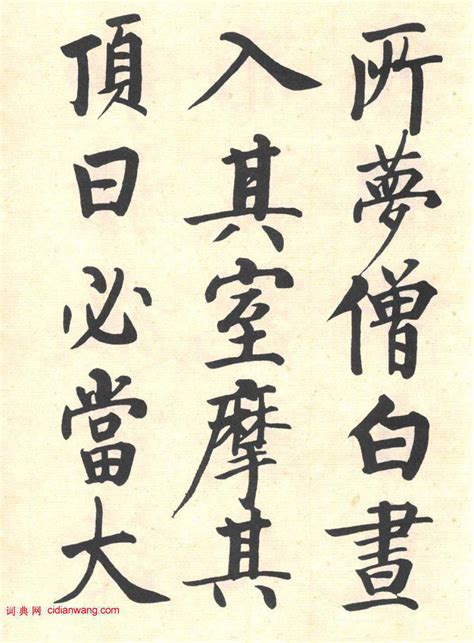 所夢僧白晝
入其室摩其
頂曰必當大
词典网 cidianwang.com